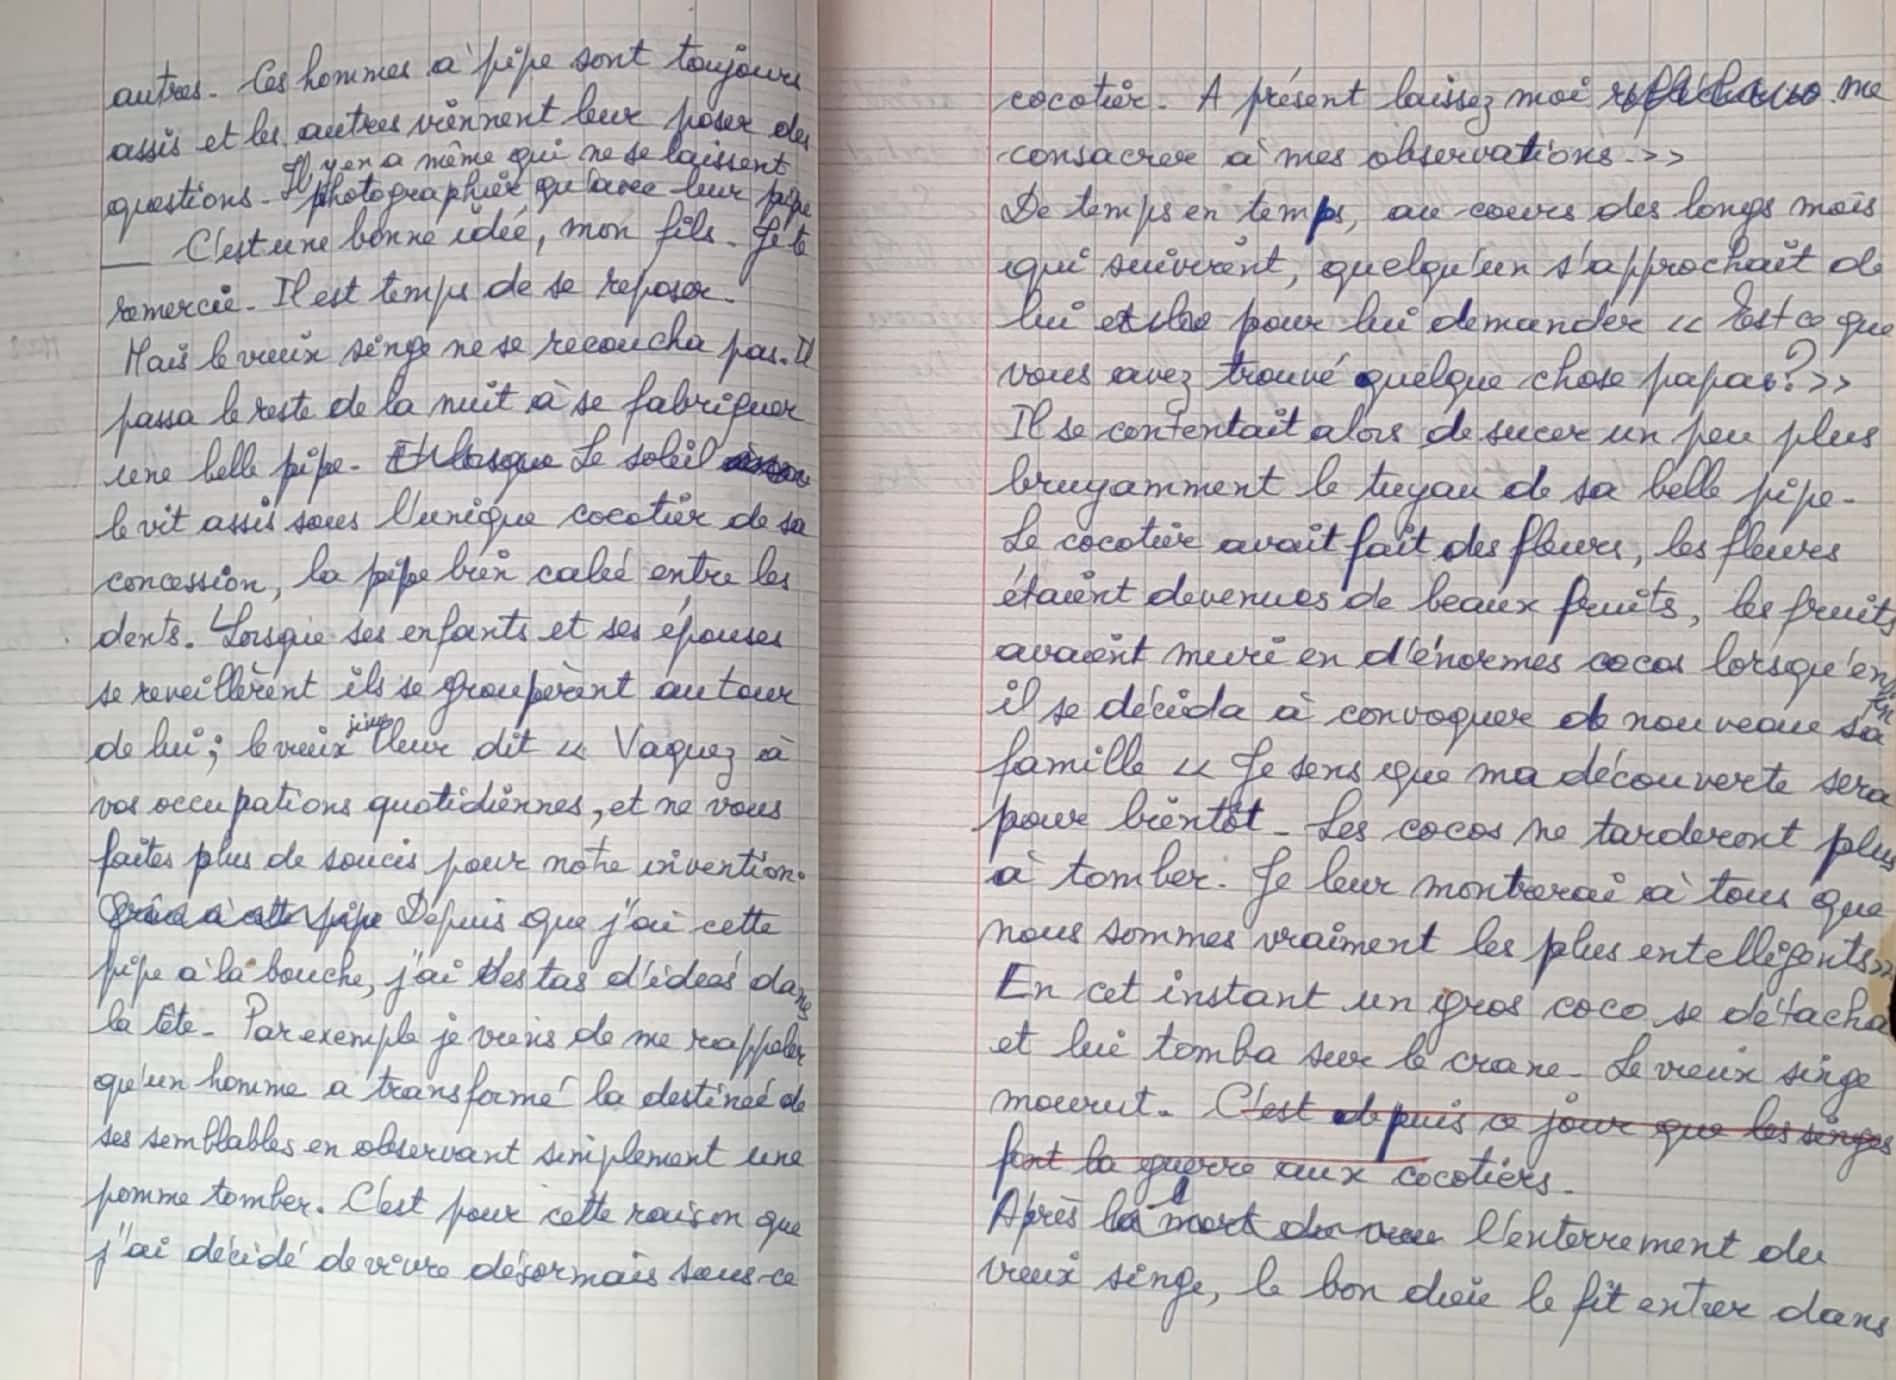 autres. Ces hommes à pipe sont toujours
assis et les autres viennent leur poser des
Il y en a même qui ne se laissent
questions. photographier qu'avec leur pipe
— C'est une bonne idée, mon fils. Je te
remercie. Il est temps de se reposer.
Mais le vieux singe ne se recoucha pas. Il
passa le reste de la nuit à se fabriquer
une belle pipe. Et lorsque Le soleil
le vit assis sous l'unique cocotier de sa
concession, la pipe bien calée entre les
dents. Lorsque ses enfants et ses épouses
se reveillèrent ils se groupèrent autour
de lui; le vieux singe leur dit « Vaquez à
vos occupations quotidiennes, et ne vous
faites plus de soucis pour notre invention.
Grâce à cette pipe Depuis que j'ai cette
pipe à la bouche, j'ai des tas d'ideés dans
la tête. Par exemple je viens de me rappeler
qu'un homme a transformé la destineé de
ses semblables en observant simplement une
pomme tomber. C'est pour cette raison que
j'ai décidé de vivre désormais sous ce
cocotier. A présent laissez moi me
consacrer à mes observations. >>
De temps en temps, au cours des longs mois
qui suivirent, quelqu'un s'approchait de
lui pour lui demander « Est ce que
vous avez trouvé quelque chose papa? >>
Il se contentait alors de sucer un peu plus
bruyamment le tuyau de sa belle pipe.
Le cocotier avait fait des fleurs, les fleurs
étaient devenues de beaux fruits, les fruits
avaient muri en d'énormes cocos lorsqu'enfin
il se décida à convoquer de nouveau sa
famille « Je sens que ma découverte sera
pour bientôt. Les cocos ne tarderont plus
à tomber. Je leur montrerai à tous que
nous sommes vraiment les plus entelligents>>
En cet instant un gros coco se détacha
et lui tomba sur le crane. Le vieux singe
mourut. C'est depuis ce jour que les singes
font la guerre aux cocotiers.
Après la mort du vieu l'enterrement du
vieux singe, le bon dieu le fit entrer dans